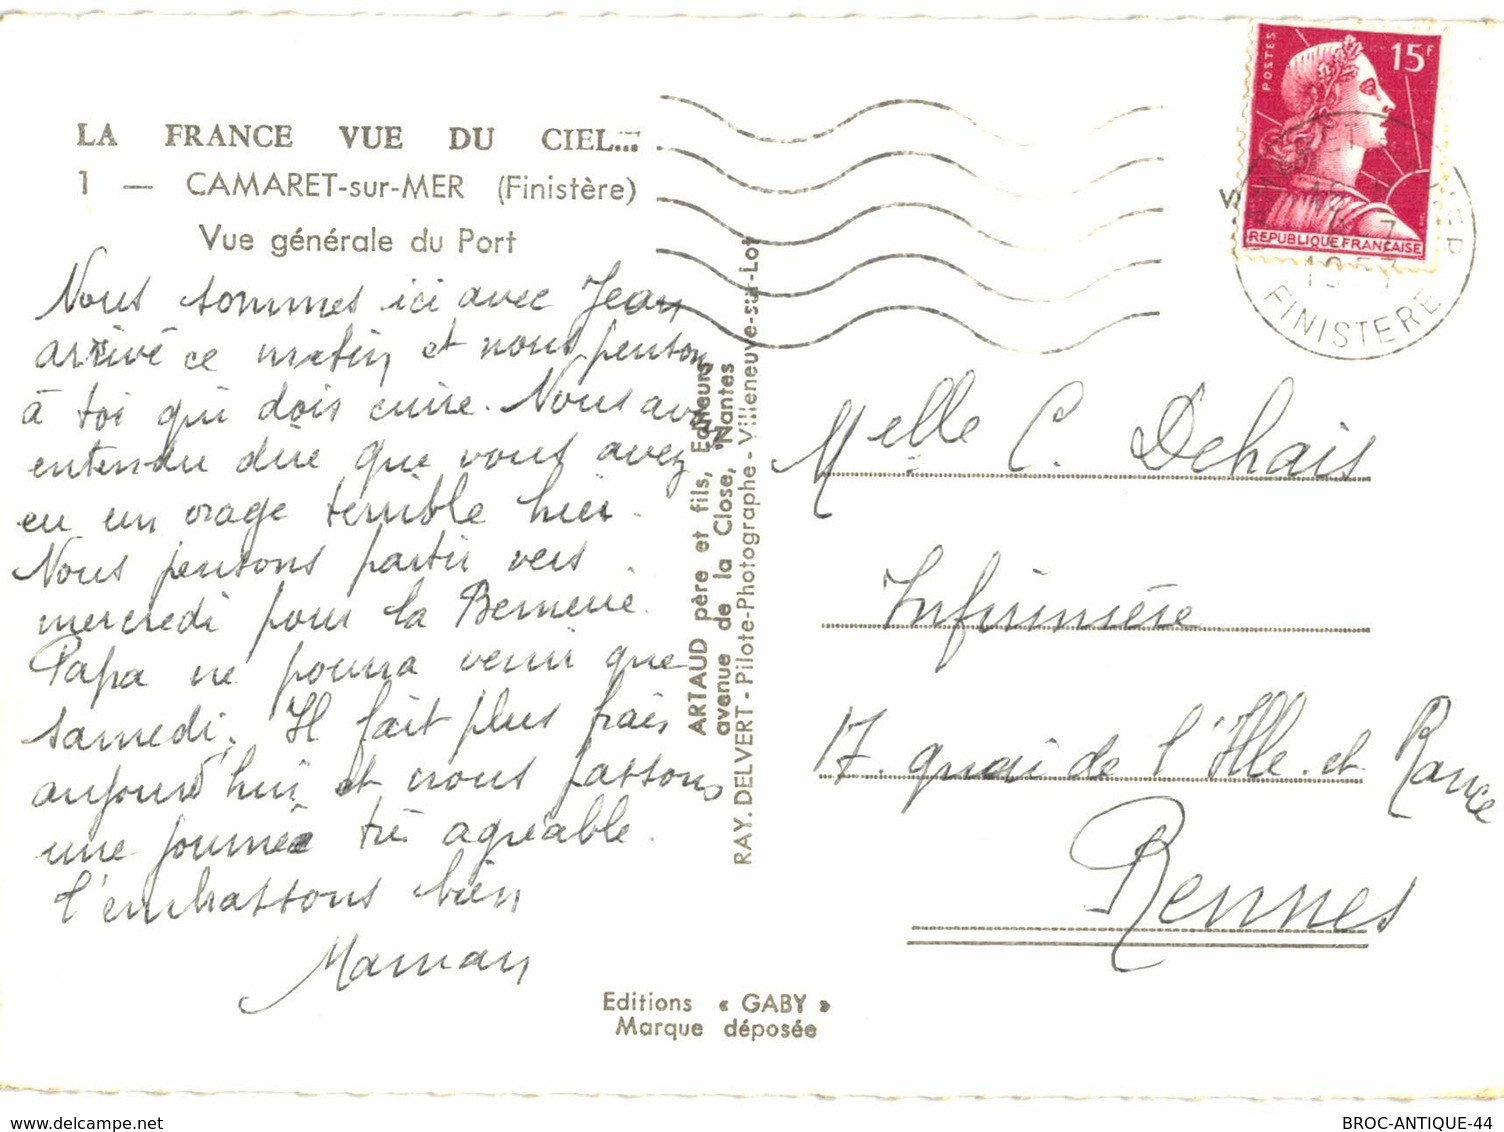 LA FRANCE VUE DU CIEL...
1 — CAMARET-sur-MER (Finistère)
Vue générale du Port
Nous sommes ici avec Jean
arrivé ce matin et nous pensons
à toi qui dois cuire. Nous avons
entendu dire que vous avez
eu un orage terrible hier.
Nous pensons partir vers
mercredi pour la Bernerie.
Papa ne pourra venir que
samedi. Il fait plus frais
aujourd'hui et nous passons
une journée très agréable.
t'embrassons bien
Maman
ARTAUD père et fils, Editeurs
avenue de la Close, Nantes
RAY. DELVERT - Pilote-Photographe - Villeneuve-sur-Lot
Editions « GABY »
Marque déposée
POSTES
15F
REPUBLIQUE FRANÇAISE
FINISTERE
Melle C. Dehais
Infirmière
17. quai de l'Ille et Rance
Rennes
www.delcampe.net
BROC-ANTIQUE-44